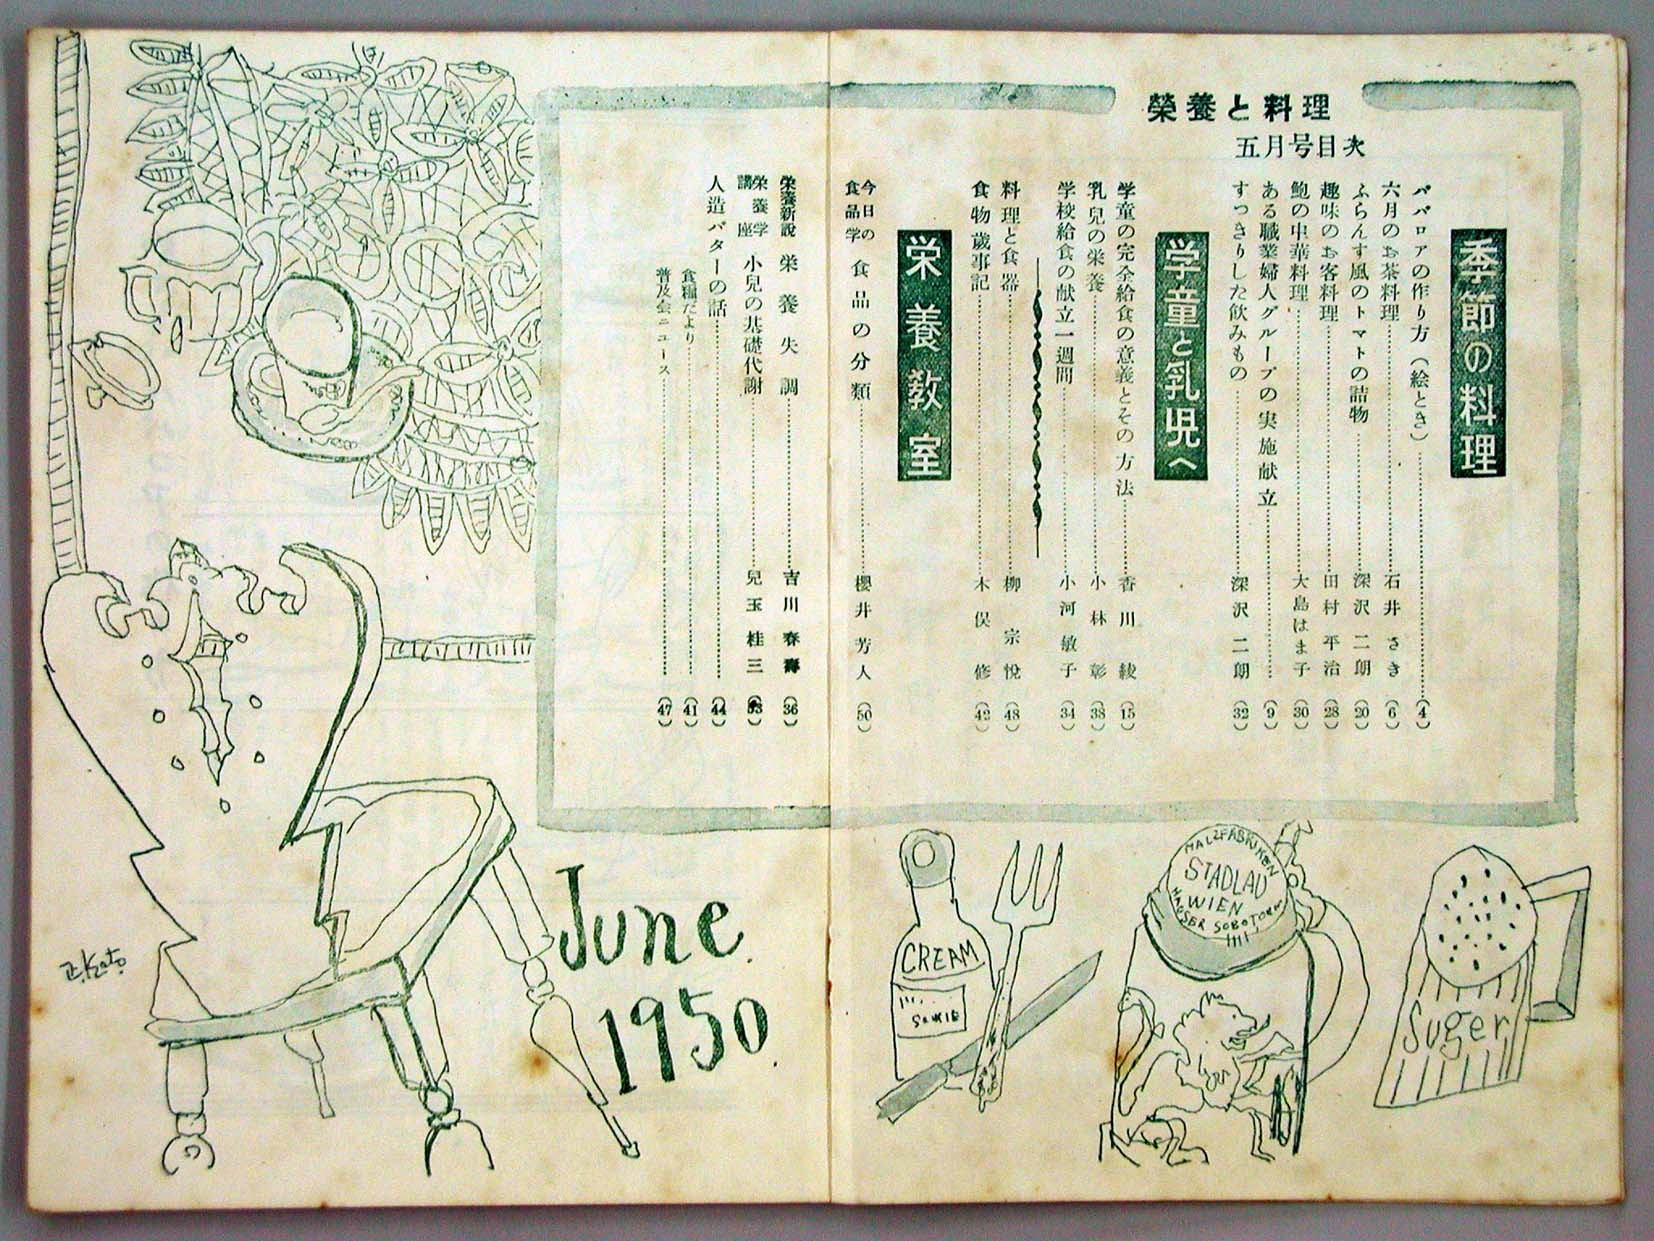 榮養と料理
五月号目次
季節の料理
ババロアの作り方（絵とき）……(4)
六月のお茶料理……石井さき(6)
ふらんす風のトマトの詰物……深沢二朗(20)
趣味のお客料理……田村平治(28)
鮑の中華料理……大島はま子(30)
ある職業婦人グループの実施献立……(9)
すっきりした飲みもの……深沢二朗(32)
学童と乳児へ
学童の完全給食の意義とその方法……香川綾(15)
乳児の栄養……小林彰(38)
学校給食の献立一週間……小河敏子(34)
料理と食器……柳宗悦(48)
食物歳事記……木俣修(42)
栄養教室
今日の食品学 食品の分類……櫻井芳人(50)
栄養新説 栄養失調……吉川春壽(36)
栄養学講座 小児の基礎代謝……兒玉桂三
人造バターの話……(44)
食糧だより……(41)
普及会ニュース……(47)
June
1950
CREAM
MALZFABRIKEN
STADLAU
WIEN
HAUSER SOBOTOKA
Suger